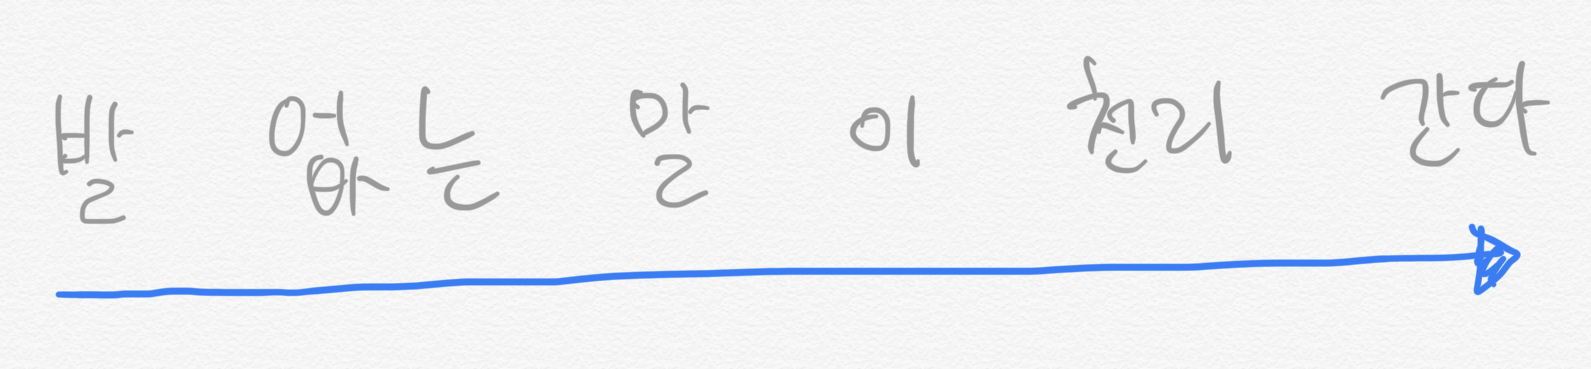 발 없는 말 이 천리 간다